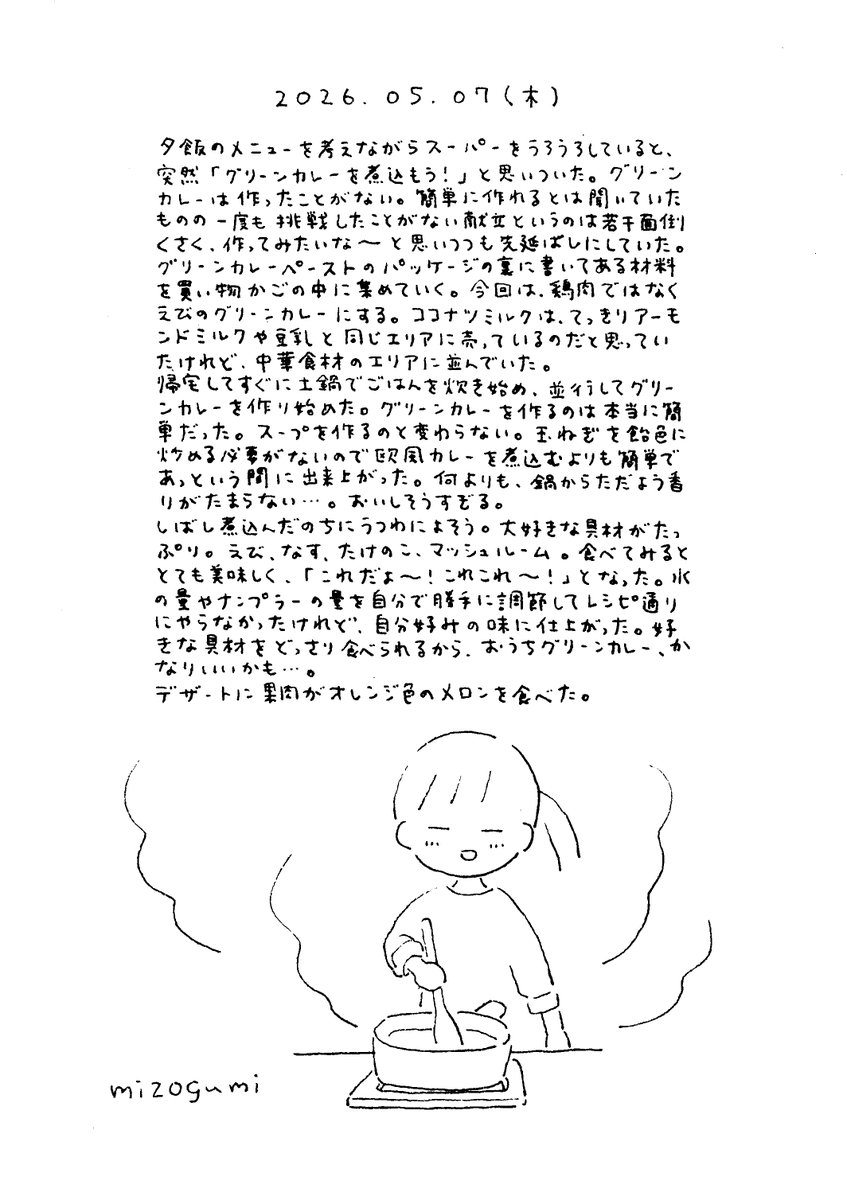 2026.05.07(木)
夕飯のメニューを考えながらスーパーをうろうろしていると、
突然「グリーンカレーを煮込もう!」と思いついた。グリーン
カレーは作ったことがない。簡単に作れるとは聞いていた
ものの一度も挑戦したことがない献立というのは若干面倒
くさく、作ってみたいな〜と思いつつも先延ばしにしていた。
グリーンカレーペーストのパッケージの裏に書いてある材料
を買い物かごの中に集めていく。今回は、鶏肉ではなく
えびのグリーンカレーにする。ココナツミルクは、てっきりアーモ
ンドミルクや豆乳と同じエリアに売っているのだと思ってい
たけれど、中華食材のエリアに並んでいた。
帰宅してすぐに土鍋でごはんを炊き始め、並行してグリー
ンカレーを作り始めた。グリーンカレーを作るのは本当に簡
単だった。スープを作るのと変わらない。玉ねぎを飴色に
炒める必要がないので欧風カレーを煮込むよりも簡単で
あっという間に出来上がった。何よりも、鍋からただよう香
りがたまらない…。おいしそうすぎる。
しばし煮込んだのちにうつわによそう。大好きな具材がたっ
ぷり。えび、なす、たけのこ、マッシュルーム。食べてみると
とても美味しく、「これだよ〜!これこれ〜!」となった。水
の量やナンプラーの量を自分で勝手に調節してレシピ通り
にやらなかったけれど、自分好みの味に仕上がった。好
きな具材をどっさり食べられるから、おうちグリーンカレー、か
なりいいかも…。
デザートに果肉がオレンジ色のメロンを食べた。
mizogumi